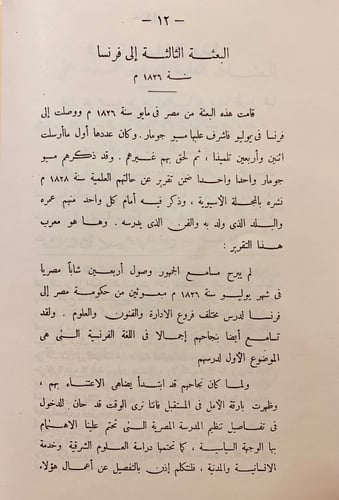 — ١٢ —
البعثة الثالثة إلى فرنسا
سنة ١٨٢٦ م
قامت هذه البعثة من مصر فى مايو سنة ١٨٢٦ م ووصلت إلى
فرنسا فى يوليو فأشرف عليها مسيو جومار. وكان عددها أول ما أرسلت
اثنين وأربعين تلميذا، ثم لحق بهم غيرهم. وقد ذكرهم مسيو
جومار واحدا واحدا ضمن تقرير عن حالتهم العلمية سنة ١٨٢٨ م
نشره بالمجلة الأسيوية، وذكر فيه أمام كل واحد منهم عمره
والبلد الذى ولد به والفن الذى يدرسه. وها هو معرب
هذا التقرير:
لم يبرح مسامع الجمهور وصول أربعين شاباً مصريا
فى شهر يوليو سنة ١٨٢٦ م مبعوثين من حكومة مصر إلى
فرنسا لدرس مختلف فروع الإدارة والفنون والعلوم. ولقد
تسامع أيضا بنجاحهم إجمالا فى اللغة الفرنسية التى هى
الموضوع الأول لدرسهم
ولما كان نجاحهم قد ابتدأ يضاهى الاعتناء بهم،
وظهرت بارقة الأمل فى المستقبل فاننا نرى الوقت قد حان للدخول
فى تفاصيل تنظيم المدرسة المصرية التى تحتم علينا الاهتمام
بها الوجهة السياسية، كما تحتمها دراسة العلوم الشرقية وخدمة
الانسانية والمدنية، فلنتكلم إذن بالتفصيل عن أعمال هؤلاء